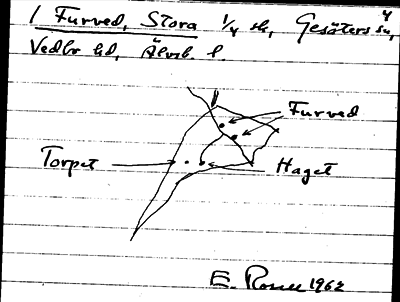 1 Furved, Stora 1/4 sk, Gesäters sn,
4
Vedbo hd, Älvsb. l.
Furved
Torpet
Haget
E. Rosell 1962